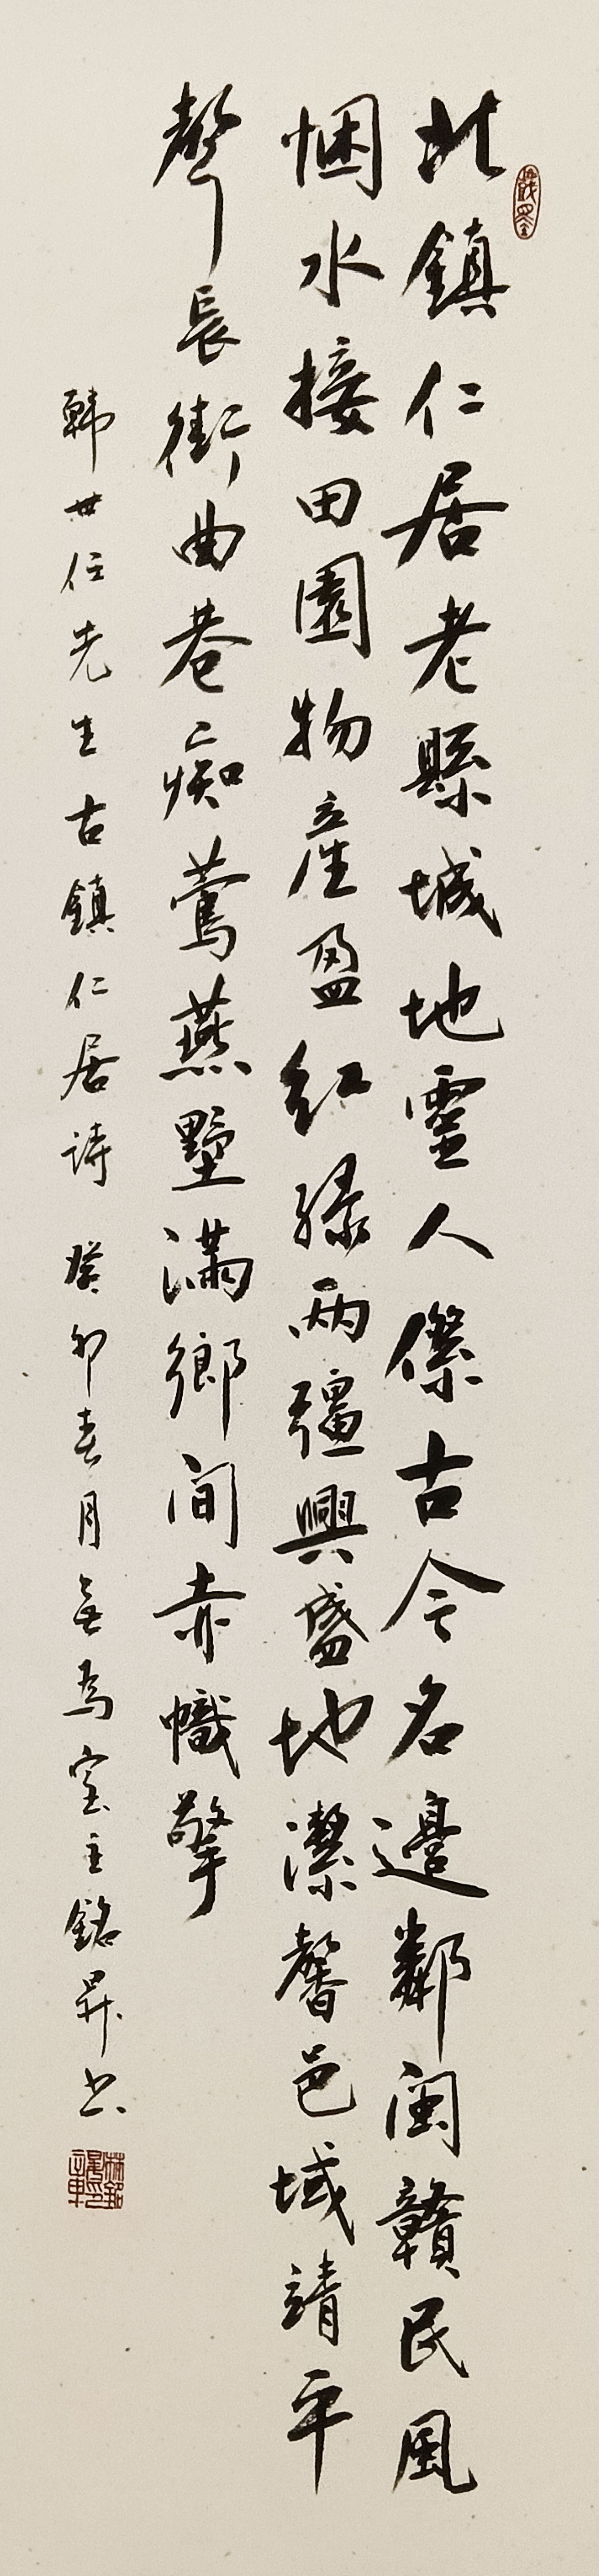 北鎮仁居老縣城地靈人傑古今名邊鄰閩贛民風
悃水接田園物產盈紅綠兩疆興盛地潔馨邑域靖平
聲長街曲巷痴鶯燕墅滿鄉間赤幟擎
韩世任先生古鎮仁居詩 癸卯春月無為室主銘昇书